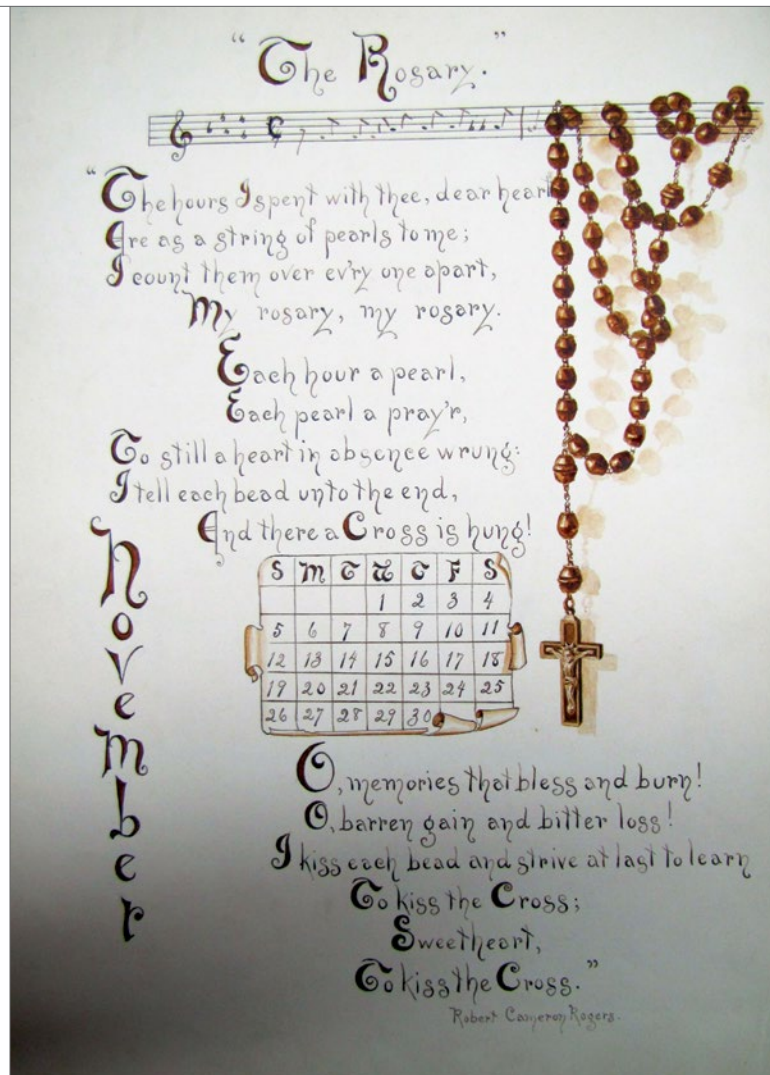 "The Rosary."
"The hours I spent with thee, dear heart
Are as a string of pearls to me;
I count them over ev'ry one apart,
My rosary, my rosary.
Each hour a pearl,
Each pearl a pray'r,
To still a heart in absence wrung:
I tell each bead unto the end,
And there a Cross is hung!
November
S M T W T F S
1 2 3 4
5 6 7 8 9 10 11
12 13 14 15 16 17 18
19 20 21 22 23 24 25
26 27 28 29 30
O, memories that bless and burn!
O, barren gain and bitter loss!
I kiss each bead and strive at last to learn
To kiss the Cross;
Sweetheart,
To kiss the Cross."
Robert Cameron Rogers.